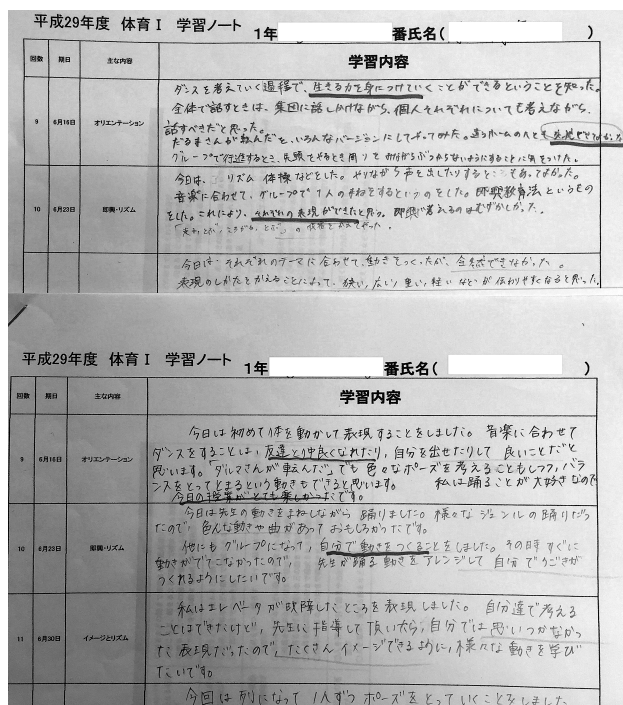 平成29年度 体育Ⅰ 学習ノート 1年 番氏名( )
回数 期日 主な内容 学習内容
9 6月16日 オリエンテーション
ダンスを考えていく過程で、生きる力を身につけていくことができるということを知った。
全体で話すときは、集団に話しかけながら、個人それぞれについても考えながら、
話すべきだと思った。
だるまさんが転んだを、いろんなバージョンにしてやってみた。
グループで行進するとき、先頭をやるとき周りをみながらぶつからないようにすることに気をつけた。
10 6月23日 即興・リズム
今日は、リズム体操などをした。やりながら声を出したりするところもあってよかった。
音楽に合わせて、グループで1人のまねをするというのをした。即興教育法というもの
をした。これにより、それぞれの表現ができたと思う。即興で考えるのはむずかしかった。
今日は、それぞれのテーマに合わせて、動きをつくったが、
表現のしかたをかえることによって、狭い、広い、重い、軽いなどが伝わりやすくなると思った。
平成29年度 体育Ⅰ 学習ノート 1年 番氏名( )
回数 期日 主な内容 学習内容
9 6月16日 オリエンテーション
今日は初めて体を動かして表現することをしました。音楽に合わせて
ダンスをすることは、友達と仲良くなれたり、自分を出せたりして良いことだと
思います。「ダルマさんが転んだ」でも色々なポーズを考えることもしつつ、バラ
ンスをとってとまるという動きもできると思います。 私は踊ることが大好きなので
今日の授業がとても楽しかったです。
10 6月23日 即興・リズム
今日は先生の動きをまねしながら踊りました。様々なジャンルの踊りだっ
たので、色んな動きや曲があっておもしろかったです。
他にもグループになって、自分で動きをつくることをしました。その時すぐに
動きがでてこなかったので、先生が踊る動きをアレンジして自分でうごきが
つくれるようにしたいです。
11 6月30日 イメージとリズム
私はエレベータが故障したところを表現しました。自分達で考える
ことはできたけど、先生に指導して頂いたら、自分では思いつかなかっ
た表現だったので、たくさんイメージできるように、様々な動きを学び
たいです。
今回は列になって1人ずつポーズをとっていくことをしました